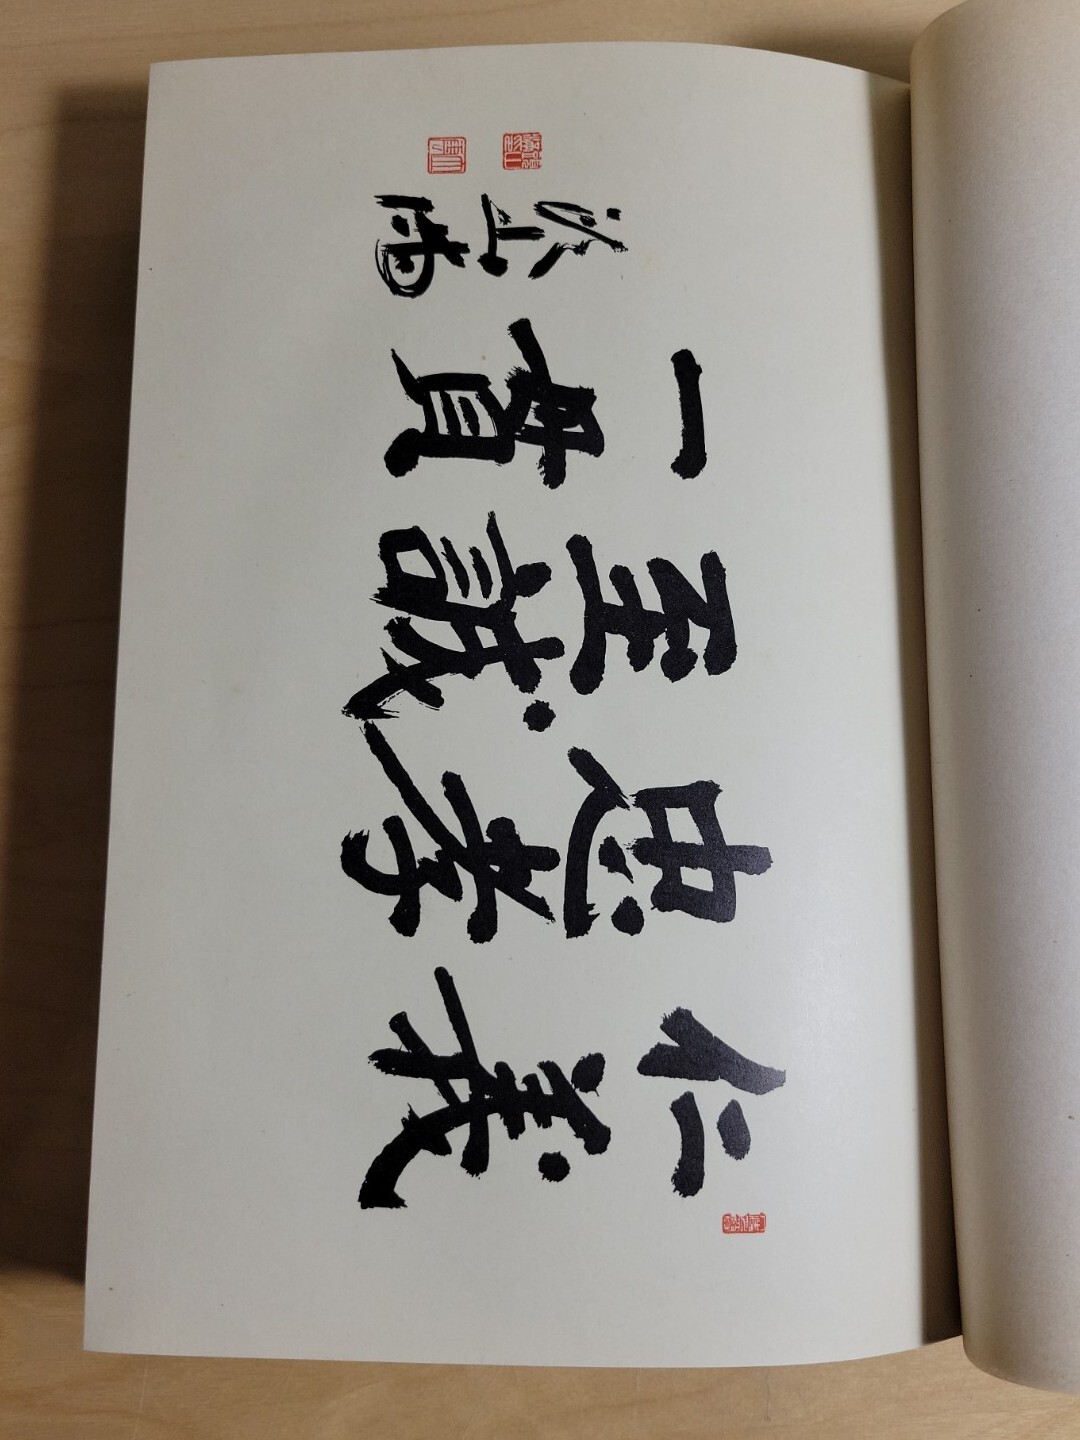 仁義
忠孝
至誠
一貫